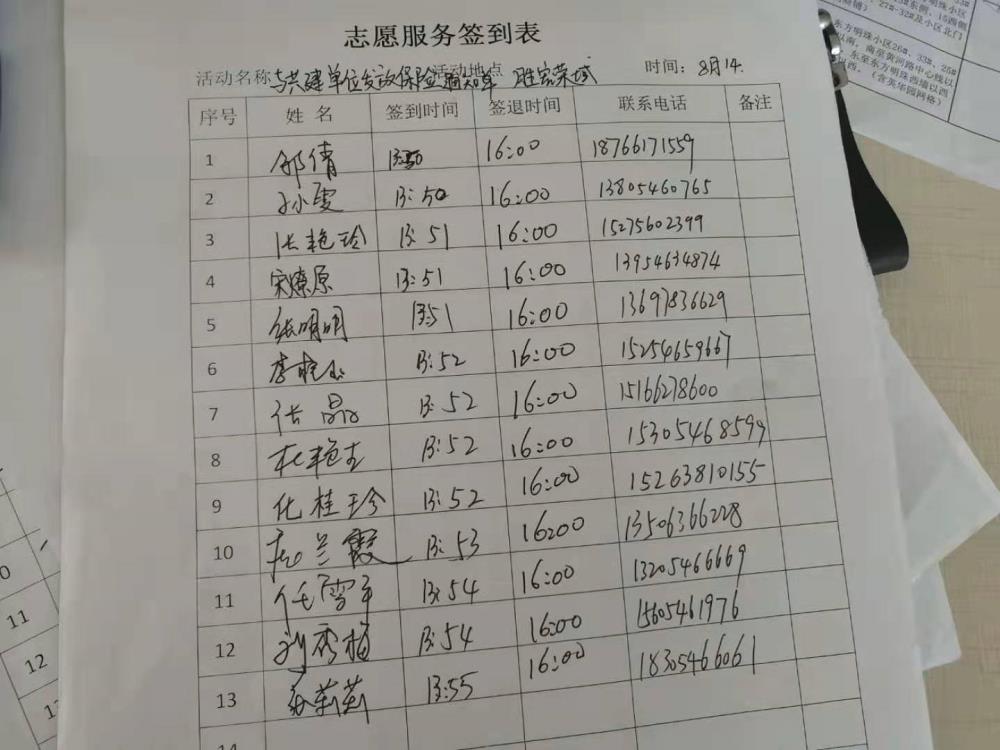 志愿服务签到表
活动名称 与共建单位发放保险通知单 活动地点 胜宏荣域 时间：8月14
序号 姓名 签到时间 签退时间 联系电话 备注
1 邹倩 13:50 16:00 18766171559
2 孙雯 13:50 16:00 13805460765
3 张艳玲 13:51 16:00 15275602399
4 宋燎原 13:51 16:00 13954634874
5 张明明 13:51 16:00 13697836629
6 李 13:52 16:00 15254659667
7 张晶 13:52 16:00 15166278600
8 杜艳 13:52 16:00 15305468599
9 化桂珍 13:52 16:00 15263810155
10 兰霞 13:53 16:00 13506366228
11 任雪平 13:54 16:00 13205466669
12 刘秀梅 13:54 16:00 15605461976
13 莉莉 13:55 16:00 18305466061
14
0
11
12
1
27#-32#及小区北门
东方明珠小区26#、33#、25#
以南，南至黄河路中心线以
东，东至东方明珠西墙以西
（含英华园网格）